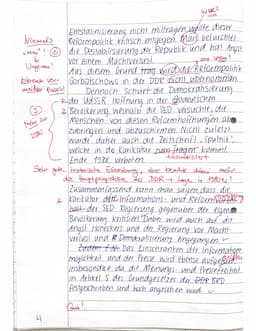 WOR!
Entstalinisierung nicht mittragen wollte dieser
Reformpolitik kritisch entgegen. Man befürchtet
die Destabilisierung der Republik und hat Angst
vor einem Machtverlust.
Aus diesem Grund trag wird die Reformpolitik
Gorbatschows in der DDR nicht übernommen.
Dennoch schürt die Demokratisierung
der UdSSR Hoffnung in der ostdeutschen
Bevölkerung, weshalb die SED versuchte, die
Menschen von diesen Reformhoffnungen ab-
zubringen und abzuschirmen. Nicht zuletzt
wurde daher auch die Zeitschrift „Sputnik",
welche in die Karikatur zum Tragen kommt,
Ende 1988 verboten.
thematisiert
Niemals
"man"!
Sehr gute historische Einordnung, aber
Hauptperspektive der DDR
Zusammenfassend kann man sagen, dass die
Karikatur die Informations- und
der SED-Regierung gegenüber der eigenen
Bevölkerung kritisiert. Dabei wird auch auf die
Angst Honeckers und der Regierung vor Macht-
verlust und Demokratisierung eingegangen.
Das Einschränken der Informations-
möglichkeit und der Presse wird ebenso aufgegriffen,
insbesondere, da die Meinungs- und Pressefreiheit
in Artikel 5 des Grundgesetzes der BRD
festgeschrieben und hoch angesehen wird.
4